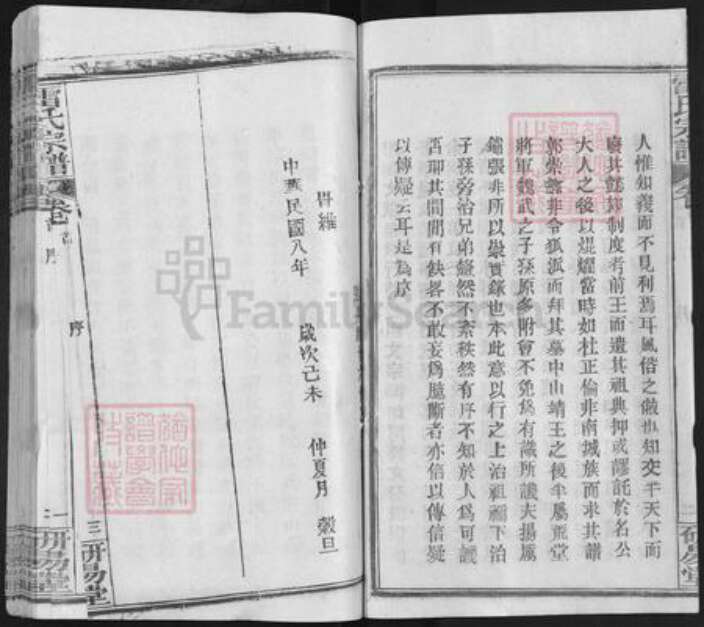 人惟知義而不見利焉耳風俗之做也知交半天下而
大人之後以焜耀當時如杜正倫非南城族而求其譜
郭崇韜非令狐派而拜其墓中山靖王之後半屬荒堂
將軍魏武之子孫原多附會不免爲有識所譏夫揚厲
鋪張非所以崇實錄也本此意以行之上治祖禰下治
子孫旁治兄弟雖然不紊秩然有序不知於人爲可謂
否耶其間間有缺畧不敢妄爲臆斷者亦信以傳信疑
以傳疑云耳是爲序
時維
中華民國八年 歲次己未 仲夏月 穀旦
序
三 研易堂
雷氏宗譜 卷首 序
二 研易堂
FamilySearch